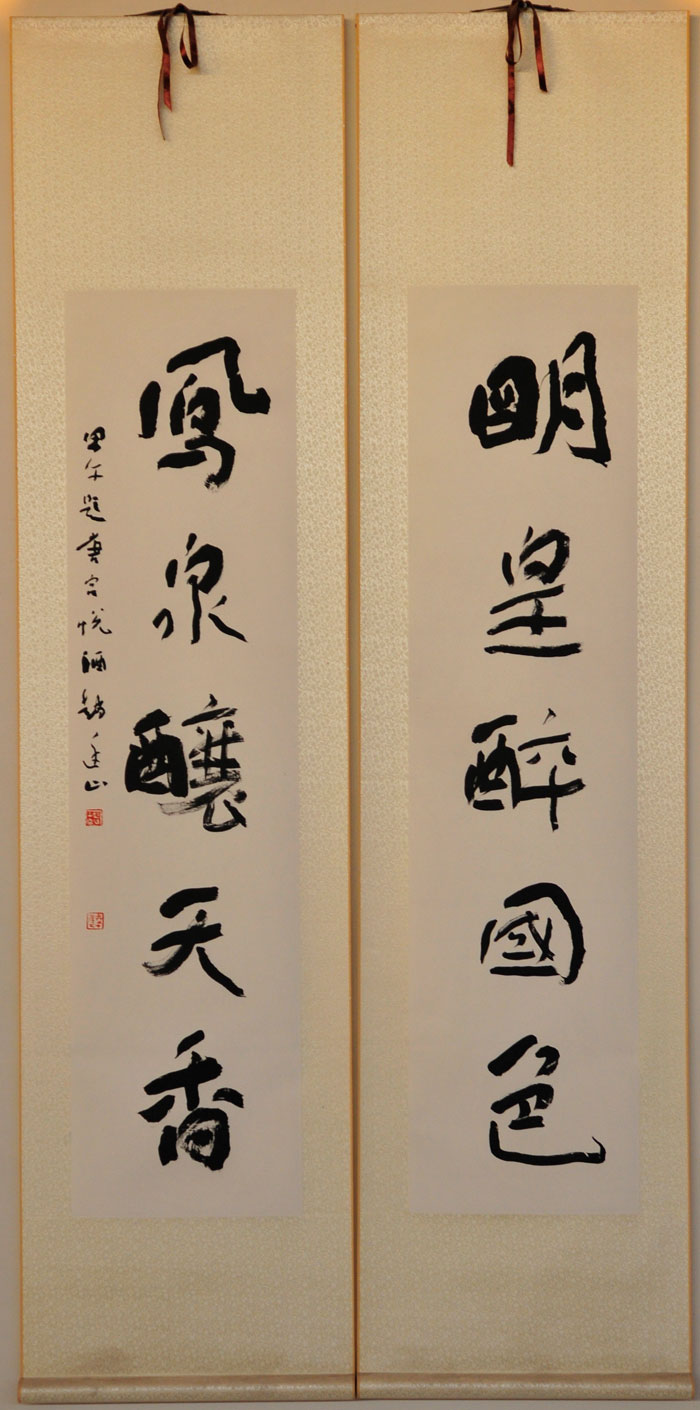 明皇醉國色
鳳泉釀天香
甲午題唐宮悅酒趙
山